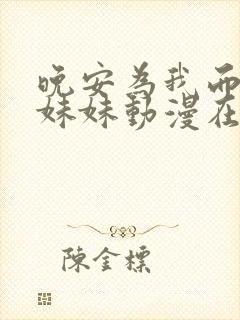 晚安為我而
妹妹動漫在
陳金標